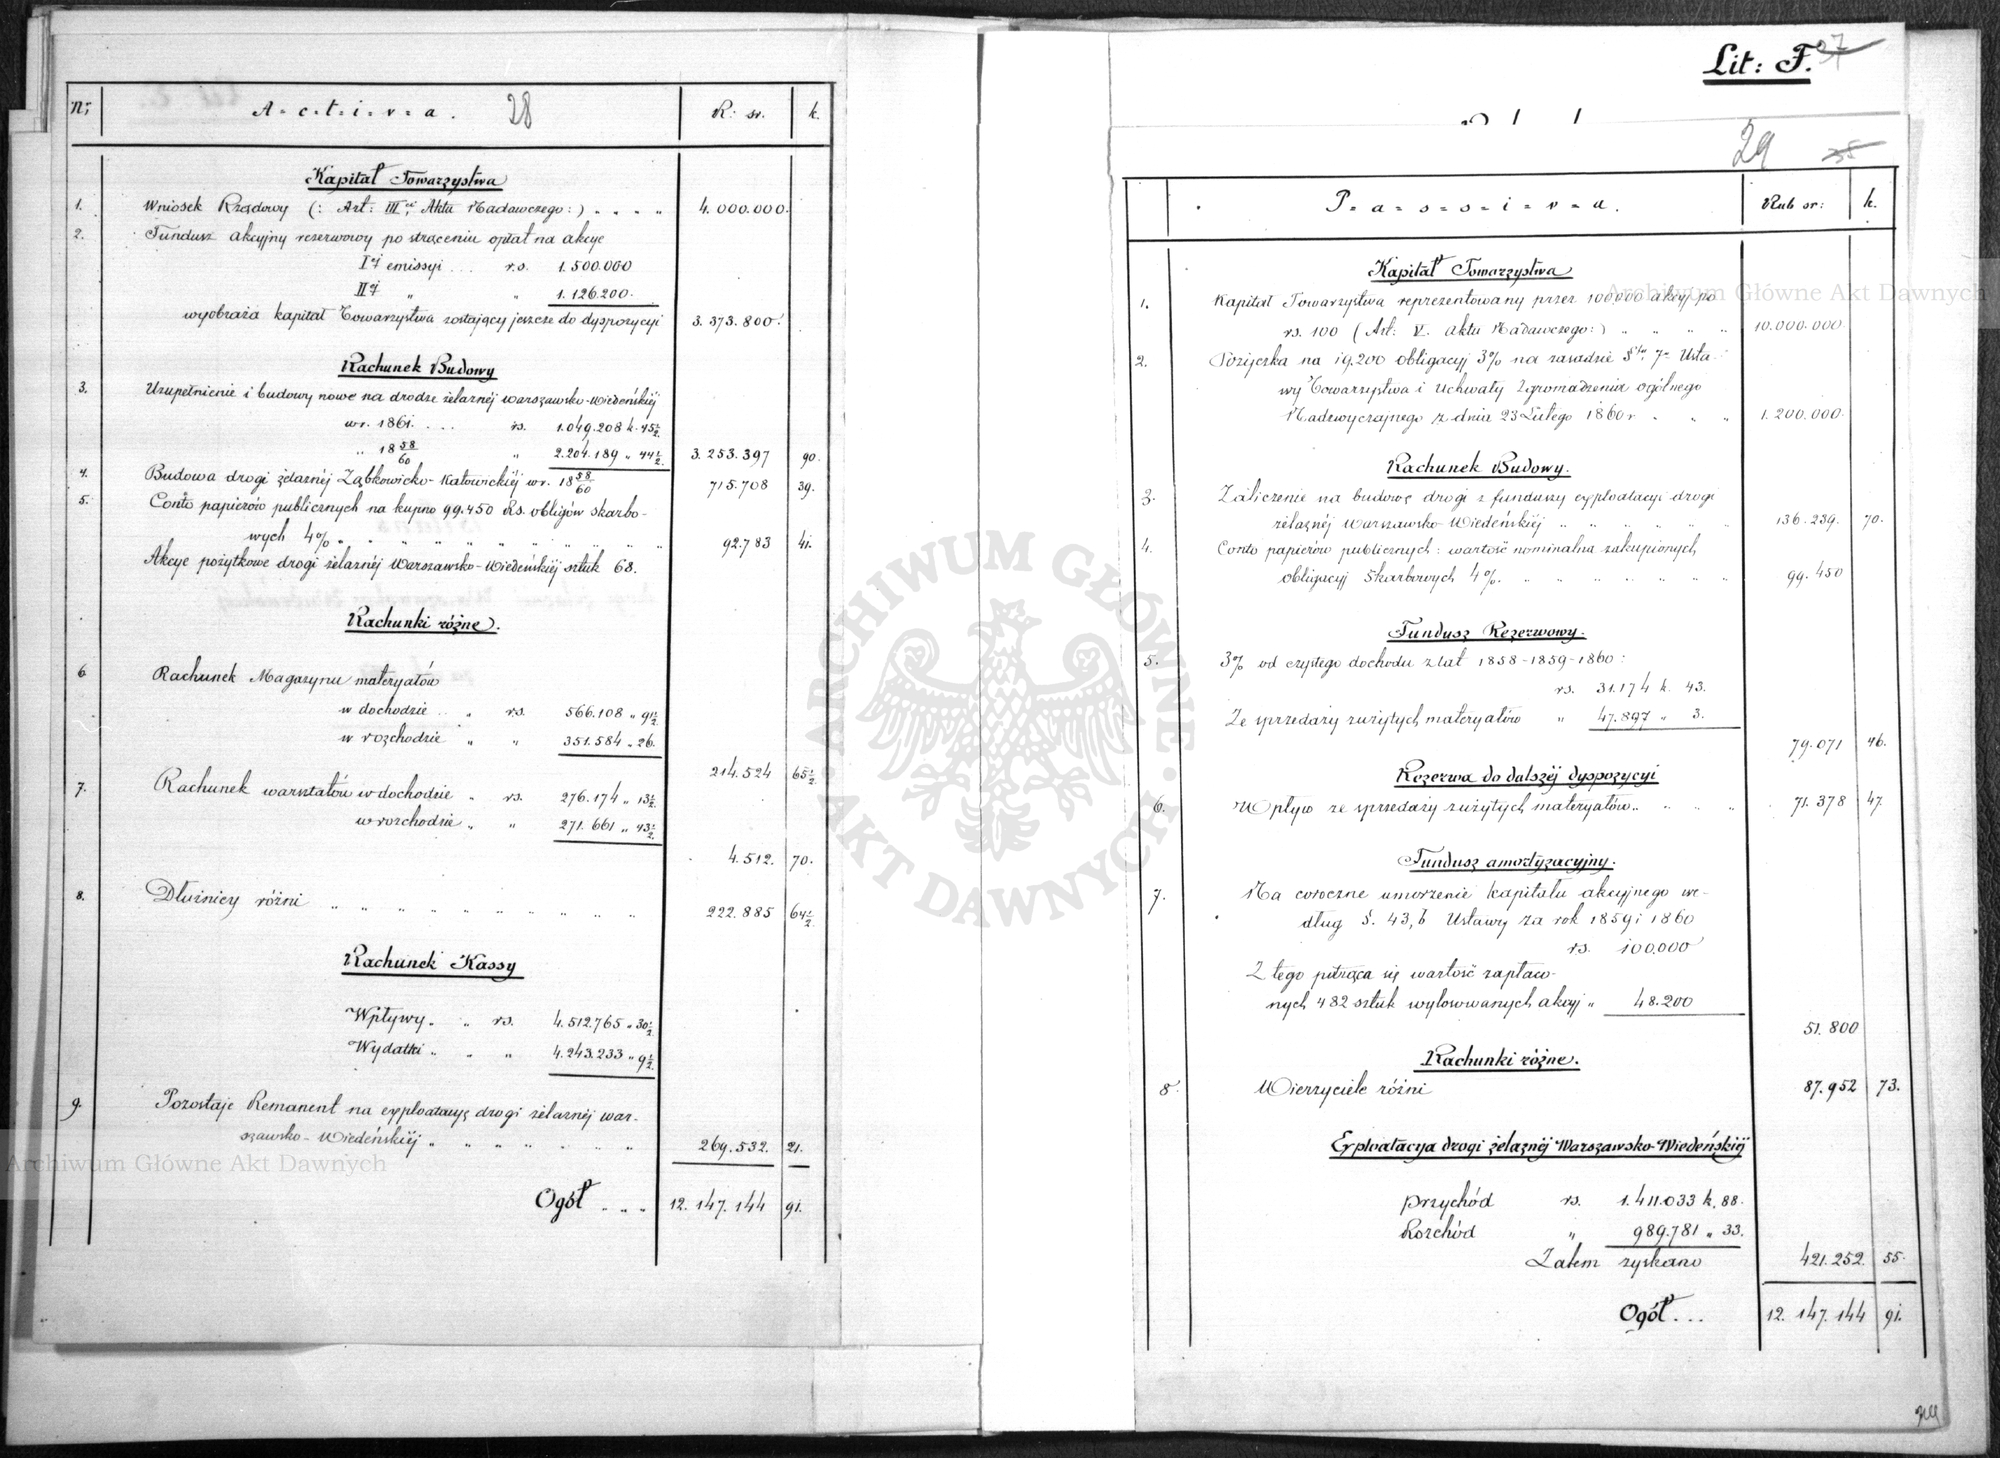 Nr; A=c=t=i=v=a. 28 R: sr. k.
Kapitał Towarzystwa
1. Wniosek Rządowy (: Art: III ci Aktu Nadawczego:) " " " " 4.000.000.
2. Fundusz akcyjny rezerwowy po strąceniu opłat na akcye
I éj emissyi ... r.s. 1.500.000
II éj " " 1.126.200.
wyobraża kapitał Towarzystwa zostający jeszcze do dyspozycyi 3.373.800.
Rachunek Budowy
3. Uzupełnienie i budowy nowe na drodze żelaznéj Warszawsko-Wiedeńskiéj
w r. 1861. ... rs. 1.049.208 k. 45½
" 18 58/60 " 2.204.189 " 44½ 3.253.397 90.
4. Budowa drogi żelaznéj Ząbkowicko-Katowickiéj w r. 18 58/60 715.708 39.
5. Conto papierów publicznych na kupno 99.450 Rs. obligów skarbo-
wych 4% " " " " " " " " " " 92.783 41.
Akcye pożytkowe drogi żelaznéj Warszawsko-Wiedeńskiéj sztuk 68.
Rachunki różne.
6. Rachunek Magazynu materyałów
w dochodzie .. " rs. 566.108 " 91½
w rozchodzie " " 351.584 " 26.
214.524 65½
7. Rachunek warsztatów w dochodzie " rs. 276.174 " 13½
w rozchodzie " " 271.661 " 43½
4.512. 70.
8. Dłużnicy różni " " " " " " " " " " 222.885 64½
Rachunek Kassy
Wpływy " " rs. 4.512.765 " 30½
Wydatki " " " 4.243.233 " 9½
9. Pozostaje Remanent na exploatacyę drogi żelaznéj War-
szawsko-Wiedeńskiéj " " " " " " " 269.532. 21.
Ogół " " " 12.147.144 91.
Lit: F. 37
29 35
P=a=s=s=i=v=a. Rub sr: k.
Kapitał Towarzystwa
1. Kapitał Towarzystwa reprezentowany przez 100,000 akcyj po
rs. 100 (Art: V. aktu Nadawczego:) " " " " 10.000.000.
2. Pożyczka na 19.200 obligacyj 3% na zasadzie § 7 Usta-
wy Towarzystwa i Uchwały Zgromadzenia ogólnego
Nadzwyczajnego z dnia 23 Lutego 1860 r " " " 1.200.000.
Rachunek Budowy.
3. Zaliczenie na budowę drogi z funduszy exploatacyi drogi
żelaznéj Warszawsko-Wiedeńskiéj " " " " " " 136.239. 70.
4. Conto papierów publicznych: wartość nominalna zakupionych
obligacyj Skarbowych 4%. " " " " " " " 99.450
Fundusz Rezerwowy.
5. 3% od czystego dochodu z lat 1858-1859-1860:
rs. 31.174 k. 43.
Ze sprzedaży zużytych materyałów " 47.897 " 3.
79.071 46.
Rezerwa do dalszéj dyspozycyi
6. Wpływ ze sprzedaży zużytych materyałów " " " " 71.378 47.
Fundusz amortyzacyjny.
7. Na coroczne umorzenie kapitału akcyjnego we-
dług §. 43, b Ustawy za rok 1859 i 1860
rs. 100.000
Z tego potrąca się wartość zapłaco-
nych 482 sztuk wylosowanych akcyj " 48.200
51.800
Rachunki różne.
8. Wierzyciele różni 87.952 73.
Exploatacya drogi żelaznéj Warszawsko-Wiedeńskiéj
Przychód rs. 1.411.033 k. 88.
Rozchód " 989.781 " 33.
Zatem zyskano 421.252. 55.
Ogół ... 12.147.144 91.
ARCHIWUM GŁÓWNE AKT DAWNYCH
Archiwum Główne Akt Dawnych
Archiwum Główne Akt Dawnych